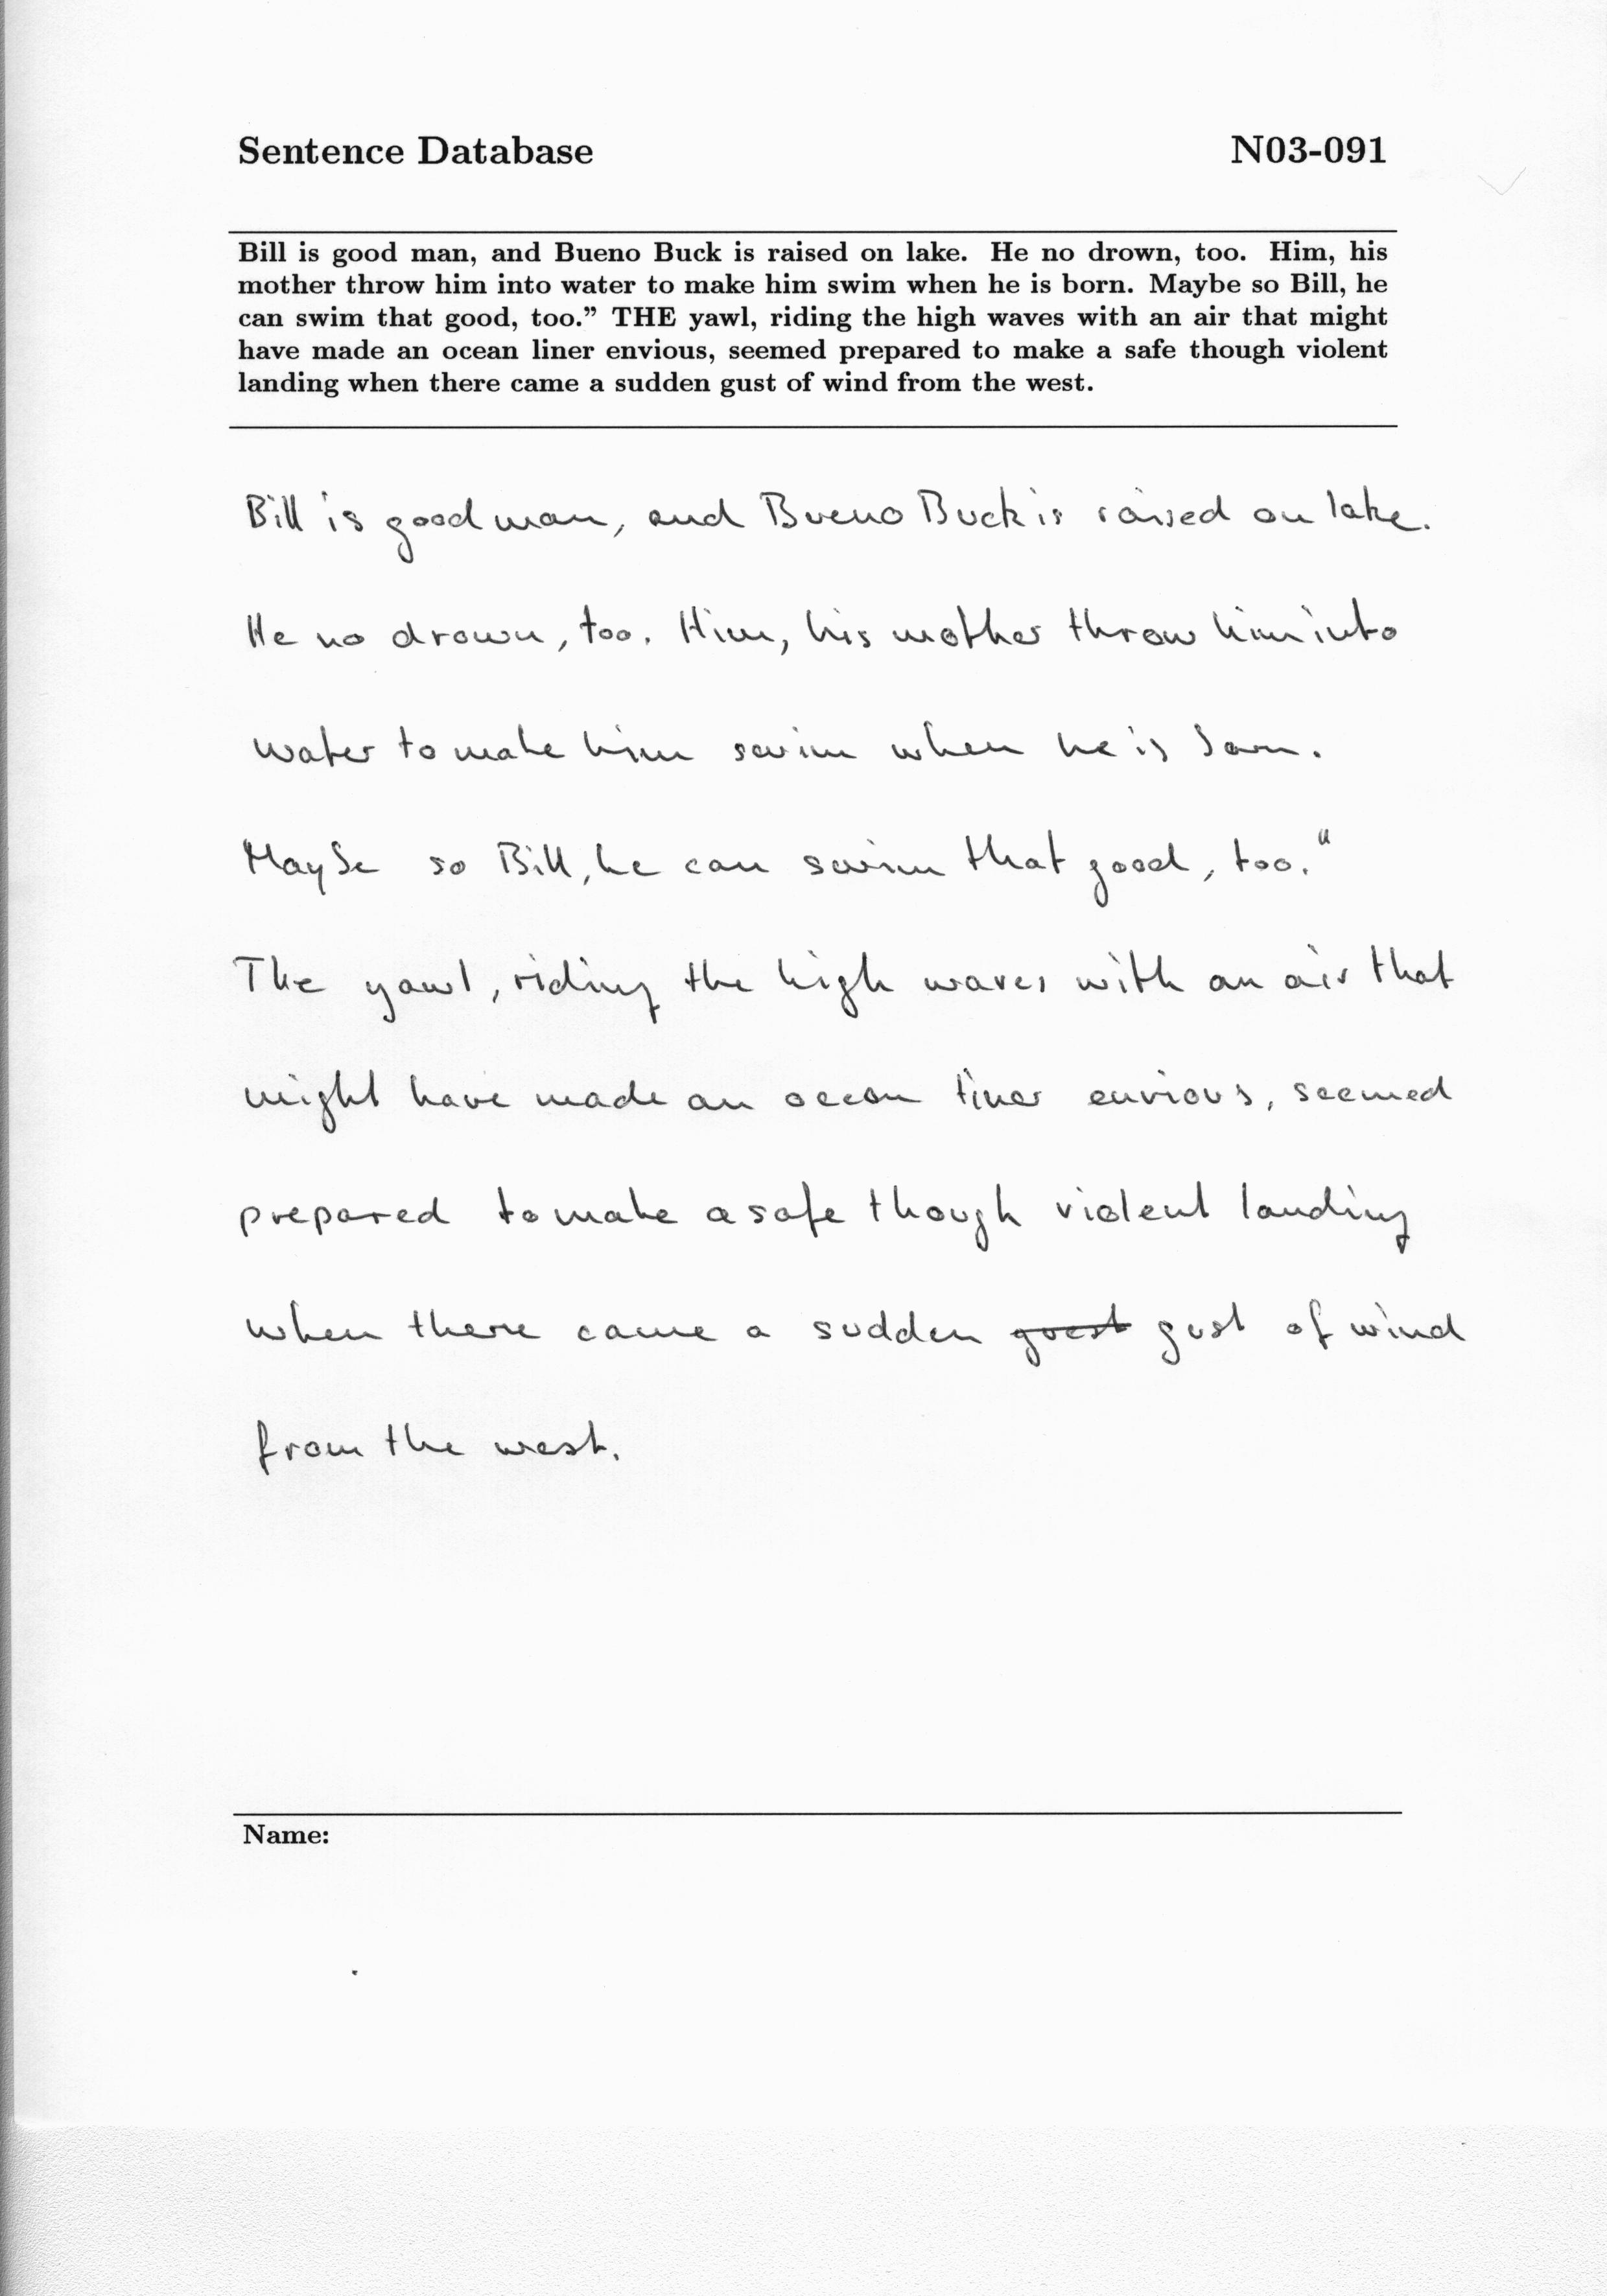 Sentence Database N03-091
Bill is good man, and Bueno Buck is raised on lake. He no drown, too. Him, his
mother throw him into water to make him swim when he is born. Maybe so Bill, he
can swim that good, too.” THE yawl, riding the high waves with an air that might
have made an ocean liner envious, seemed prepared to make a safe though violent
landing when there came a sudden gust of wind from the west.
Bill is good man, and Bueno Buck is raised on lake.
He no drown, too. Him, his mother throw him into
water to make him swim when he is born.
Maybe so Bill, he can swim that good, too."
The yawl, riding the high waves with an air that
might have made an ocean liner envious, seemed
prepared to make a safe though violent landing
when there came a sudden guest gust of wind
from the west.
Name: